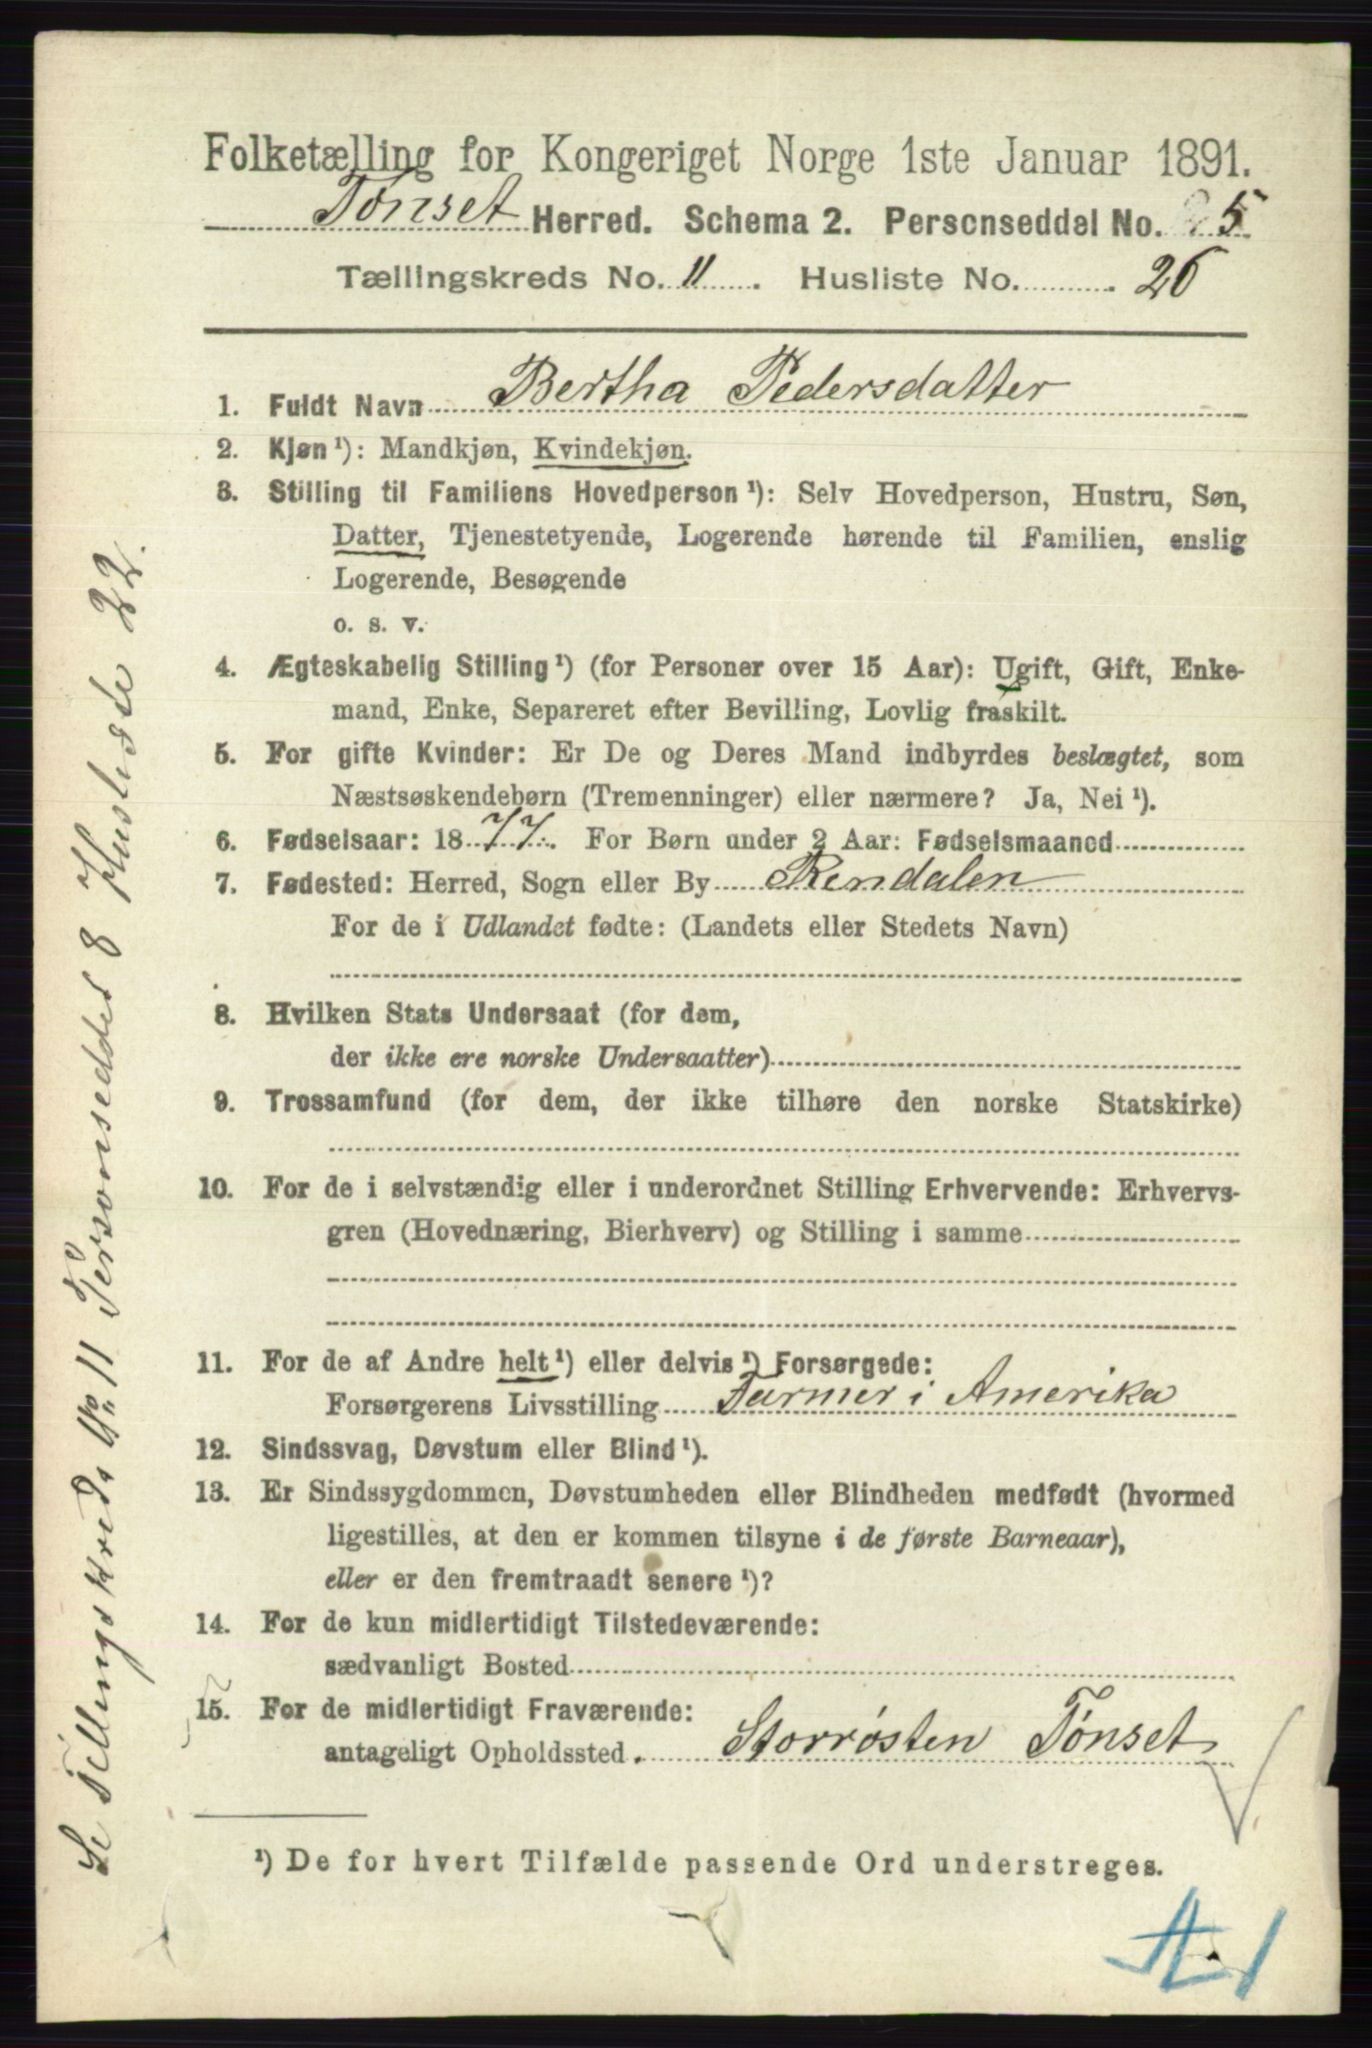 Folketælling for Kongeriget Norge 1ste Januar 1891.
Tønset Herred. Schema 2. Personseddel No. 5
Tællingskreds No. 11. Husliste No. 26
1. Fuldt Navn Bertha Pedersdatter
2. Kjøn ¹): Mandkjøn, Kvindekjøn.
3. Stilling til Familiens Hovedperson ¹): Selv Hovedperson, Hustru, Søn,
Datter, Tjenestetyende, Logerende hørende til Familien, enslig
Logerende, Besøgende
o. s. v.
4. Ægteskabelig Stilling ¹) (for Personer over 15 Aar): Ugift, Gift, Enke-
mand, Enke, Separeret efter Bevilling, Lovlig fraskilt.
5. For gifte Kvinder: Er De og Deres Mand indbyrdes beslægtet, som
Næstsøskendebørn (Tremenninger) eller nærmere? Ja, Nei ¹).
6. Fødselsaar: 1877. For Børn under 2 Aar: Fødselsmaaned
7. Fødested: Herred, Sogn eller By Rendalen
For de i Udlandet fødte: (Landets eller Stedets Navn)
8. Hvilken Stats Undersaat (for dem,
der ikke ere norske Undersaatter)
9. Trossamfund (for dem, der ikke tilhøre den norske Statskirke)
10. For de i selvstændig eller i underordnet Stilling Erhvervende: Erhvervs-
gren (Hovednæring, Bierhverv) og Stilling i samme
11. For de af Andre helt ¹) eller delvis ¹) Forsørgede:
Forsørgerens Livsstilling Farmer i Amerika
12. Sindssvag, Døvstum eller Blind ¹).
13. Er Sindssygdommen, Døvstumheden eller Blindheden medfødt (hvormed
ligestilles, at den er kommen tilsyne i de første Barneaar),
eller er den fremtraadt senere ¹)?
14. For de kun midlertidigt Tilstedeværende:
sædvanligt Bosted
15. For de midlertidigt Fraværende:
antageligt Opholdssted. Storrøsten Tønset
¹) De for hvert Tilfælde passende Ord understreges.
Se Tellingskreds No. 11 Personseddel 8 Husliste 22.